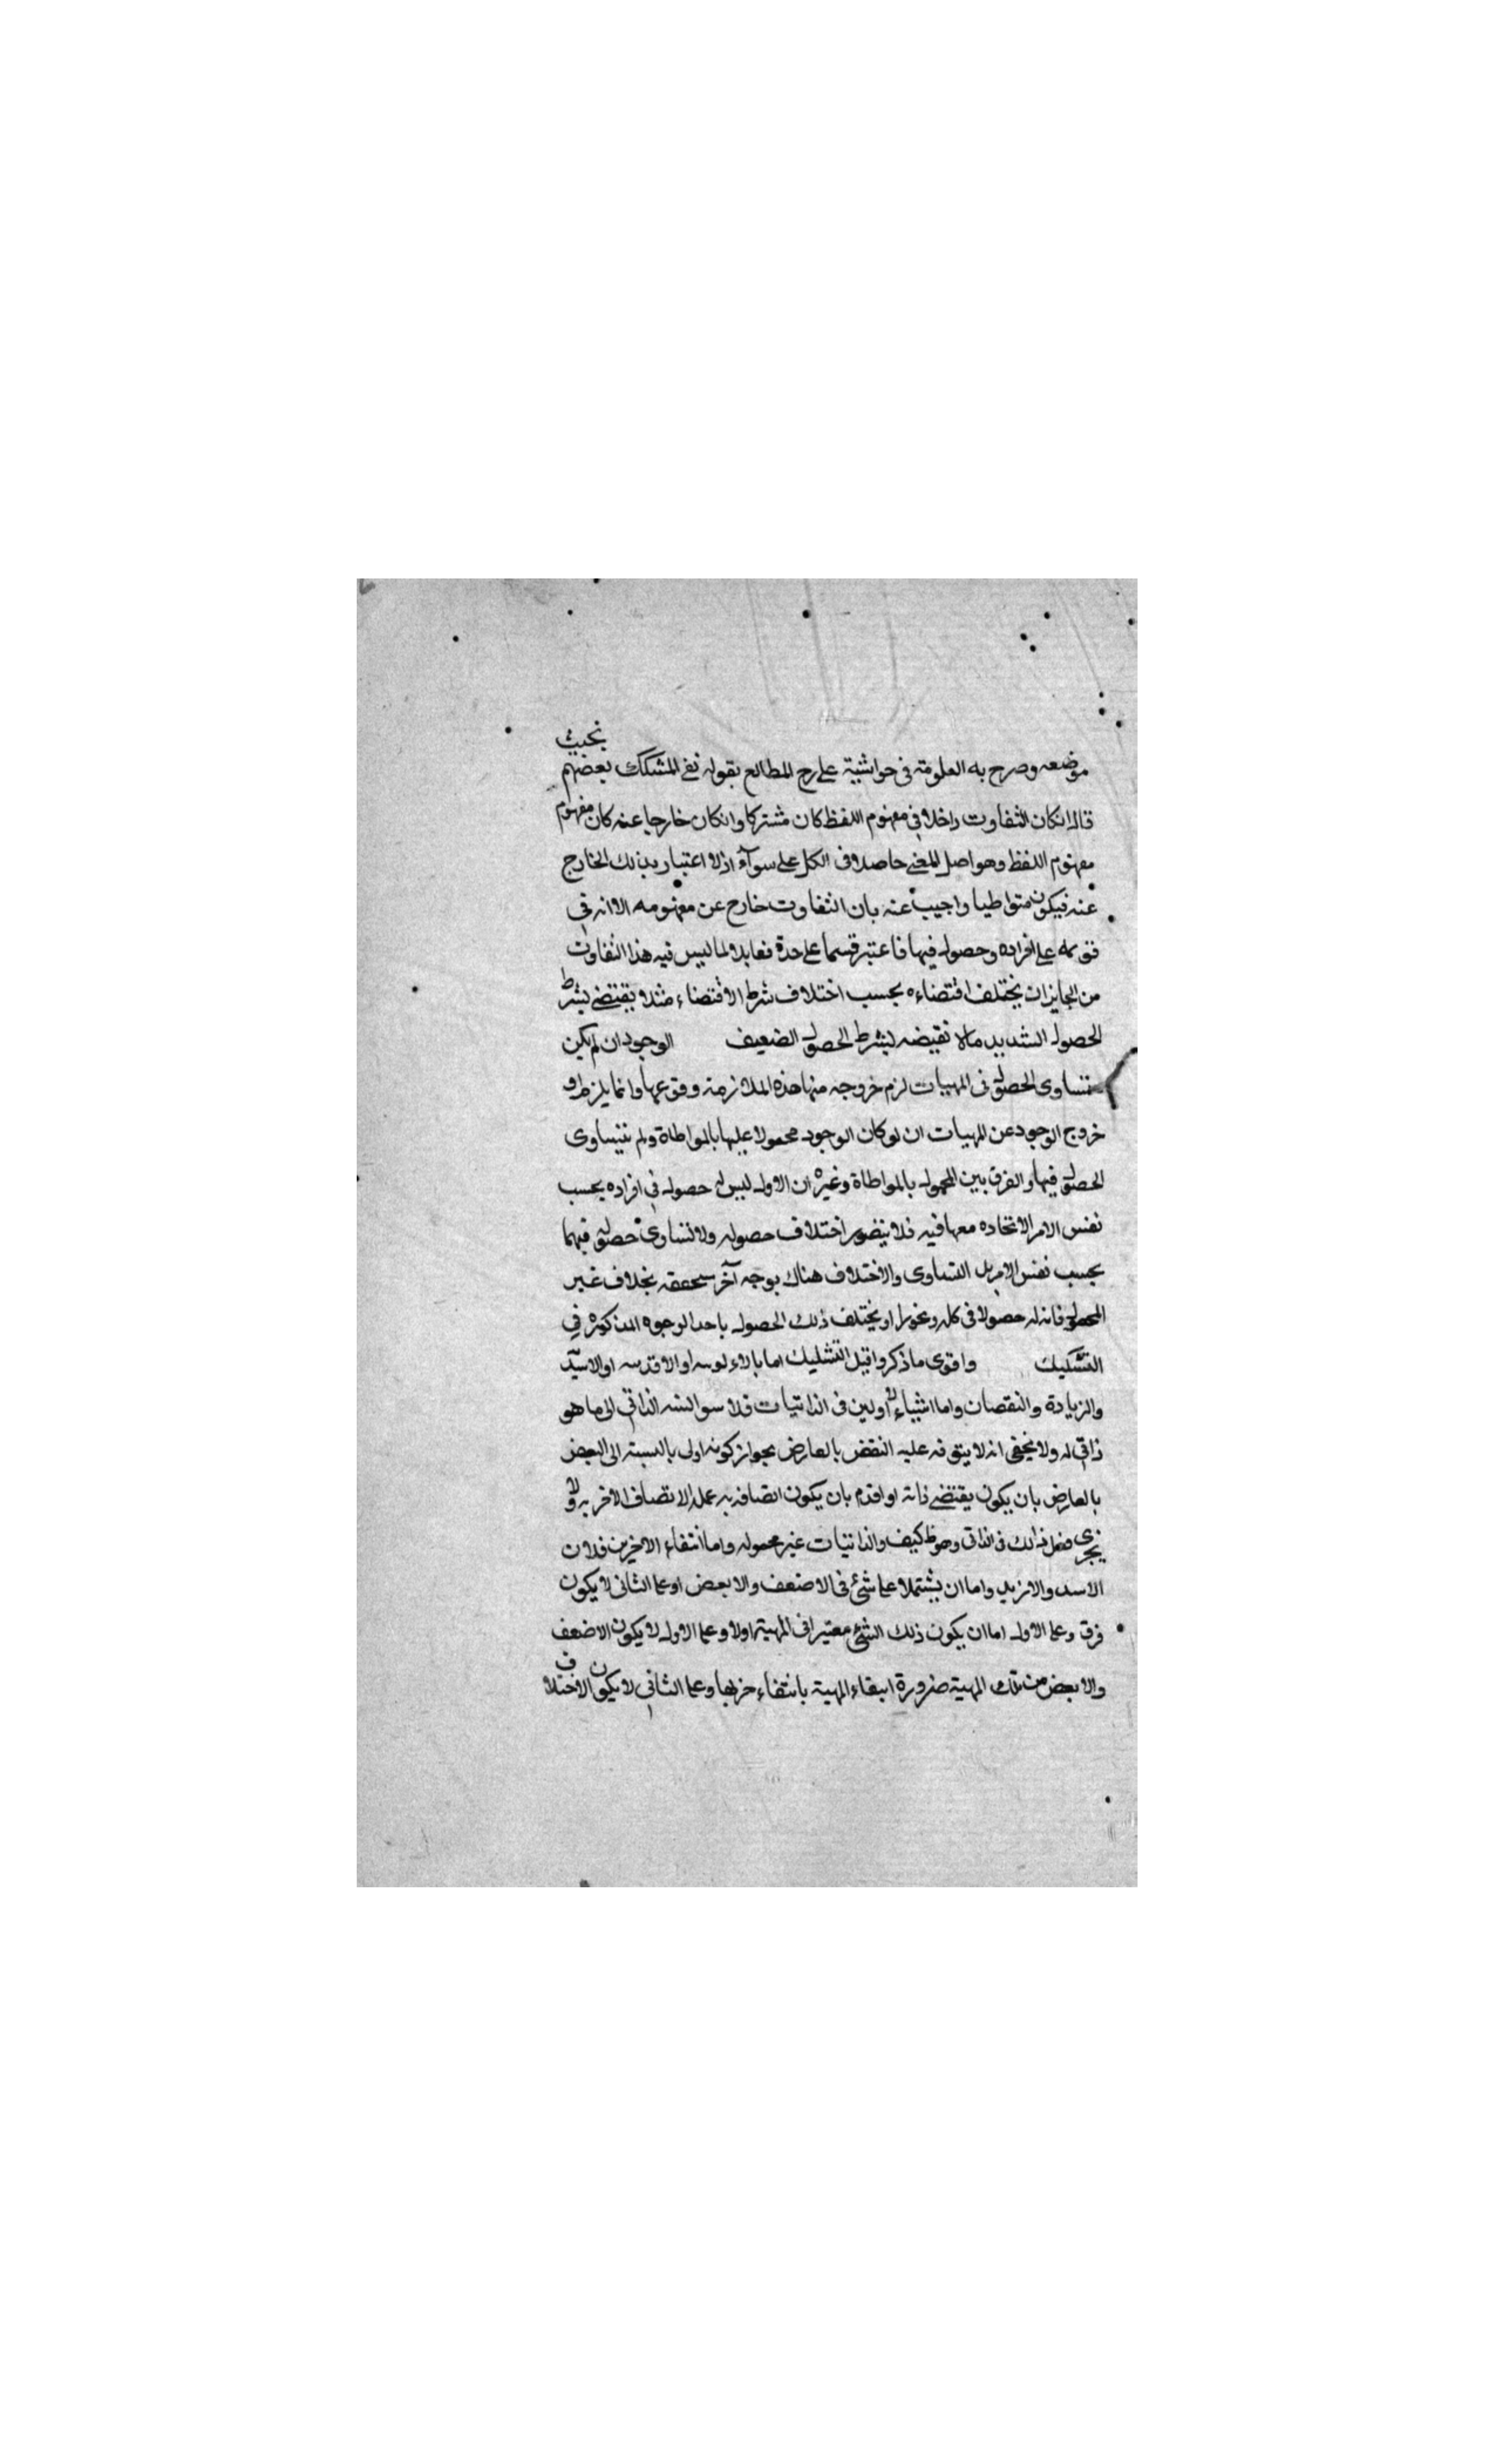 بحيث
موضعه وصرح به العلومة في حواشية على رح المطالع بقوله نفى المشكك بعضهم
قال انكان التفاوت داخلا في مفهوم اللفظ كان مشتركا وانكان خارجا عنه كان مفهوم
مفهوم اللفظ وهو اصل المعنى حاصلا في الكل على سوآء اذ لا اعتبار بذلك الخارج
عنه فيكون متواطيا واجيب عنه بان التفاوت خارج عن مفهومه الا انه في
على افراده وحصوله فيها فاعتبر قسما على حدة مقابلا لما ليس فيه هذا التفاوت
من الجايزان يختلف اقتضاءه بحسب اختلاف شرط الاقتضاء مثلا يقتضى بشرط
الحصول الشديد مالا نقيضه بشرط الحصول الضعيف الوجود ان لم يكن
متساوى الحصول في المهيات لزم خروجه منها هذه الملازمة وانما يلزم
خروج الوجود عن المهيات ان لو كان الوجود محمولا عليها بالمواطاة ولم يتساوى
الحصول فيها والفرق بين المحمول بالمواطاة وغيره ان الاول ليس له حصول في افراده بحسب
نفس الامر لاتحاده معها فيه فلا يتصور اختلاف حصوله ولا تساوى حصوله فيهما
بحسب نفس الامر بل التساوى والاختلاف هناك بوجه آخر سحققه بخلاف غير
المحمول فانه له حصولا في كله ويختلف ذلك الحصول باحد الوجوه المذكورة في
التشكيك واقوى ما ذكروا قيل التشكيك اما بالاولوية او الاقدمية او الاشد
والزيادة والنقصان واما الاولين في الذاتيات فلا الذاتى الى ما هو
ذاتى له ولا يخفى انه لا يتوقف عليه النقض بالعارض بجواز كونه اولى بالنسبة الى البعض
بالعارض بان يكون يقتضى ذاته او اقدم بان يكون اتصافه به علة لاتصاف الاخر به ولا
يجرى مثل ذلك في الذاتى كيف والذاتيات غير محموله واما انتفاء الاخيرين فلان
الاشد والازيد واما ان يشتملا على شئ في الاضعف والابعض او على الثانى لا يكون
فرق وعلى الاول اما ان يكون ذلك الشئ معتبرا في المهية اولا وعلى الاول لا يكون الاضعف
والابعض من تلك المهية ضرورة انتفاء المهية بانتفاء جزءها وعلى الثانى لا يكون الاختلاف